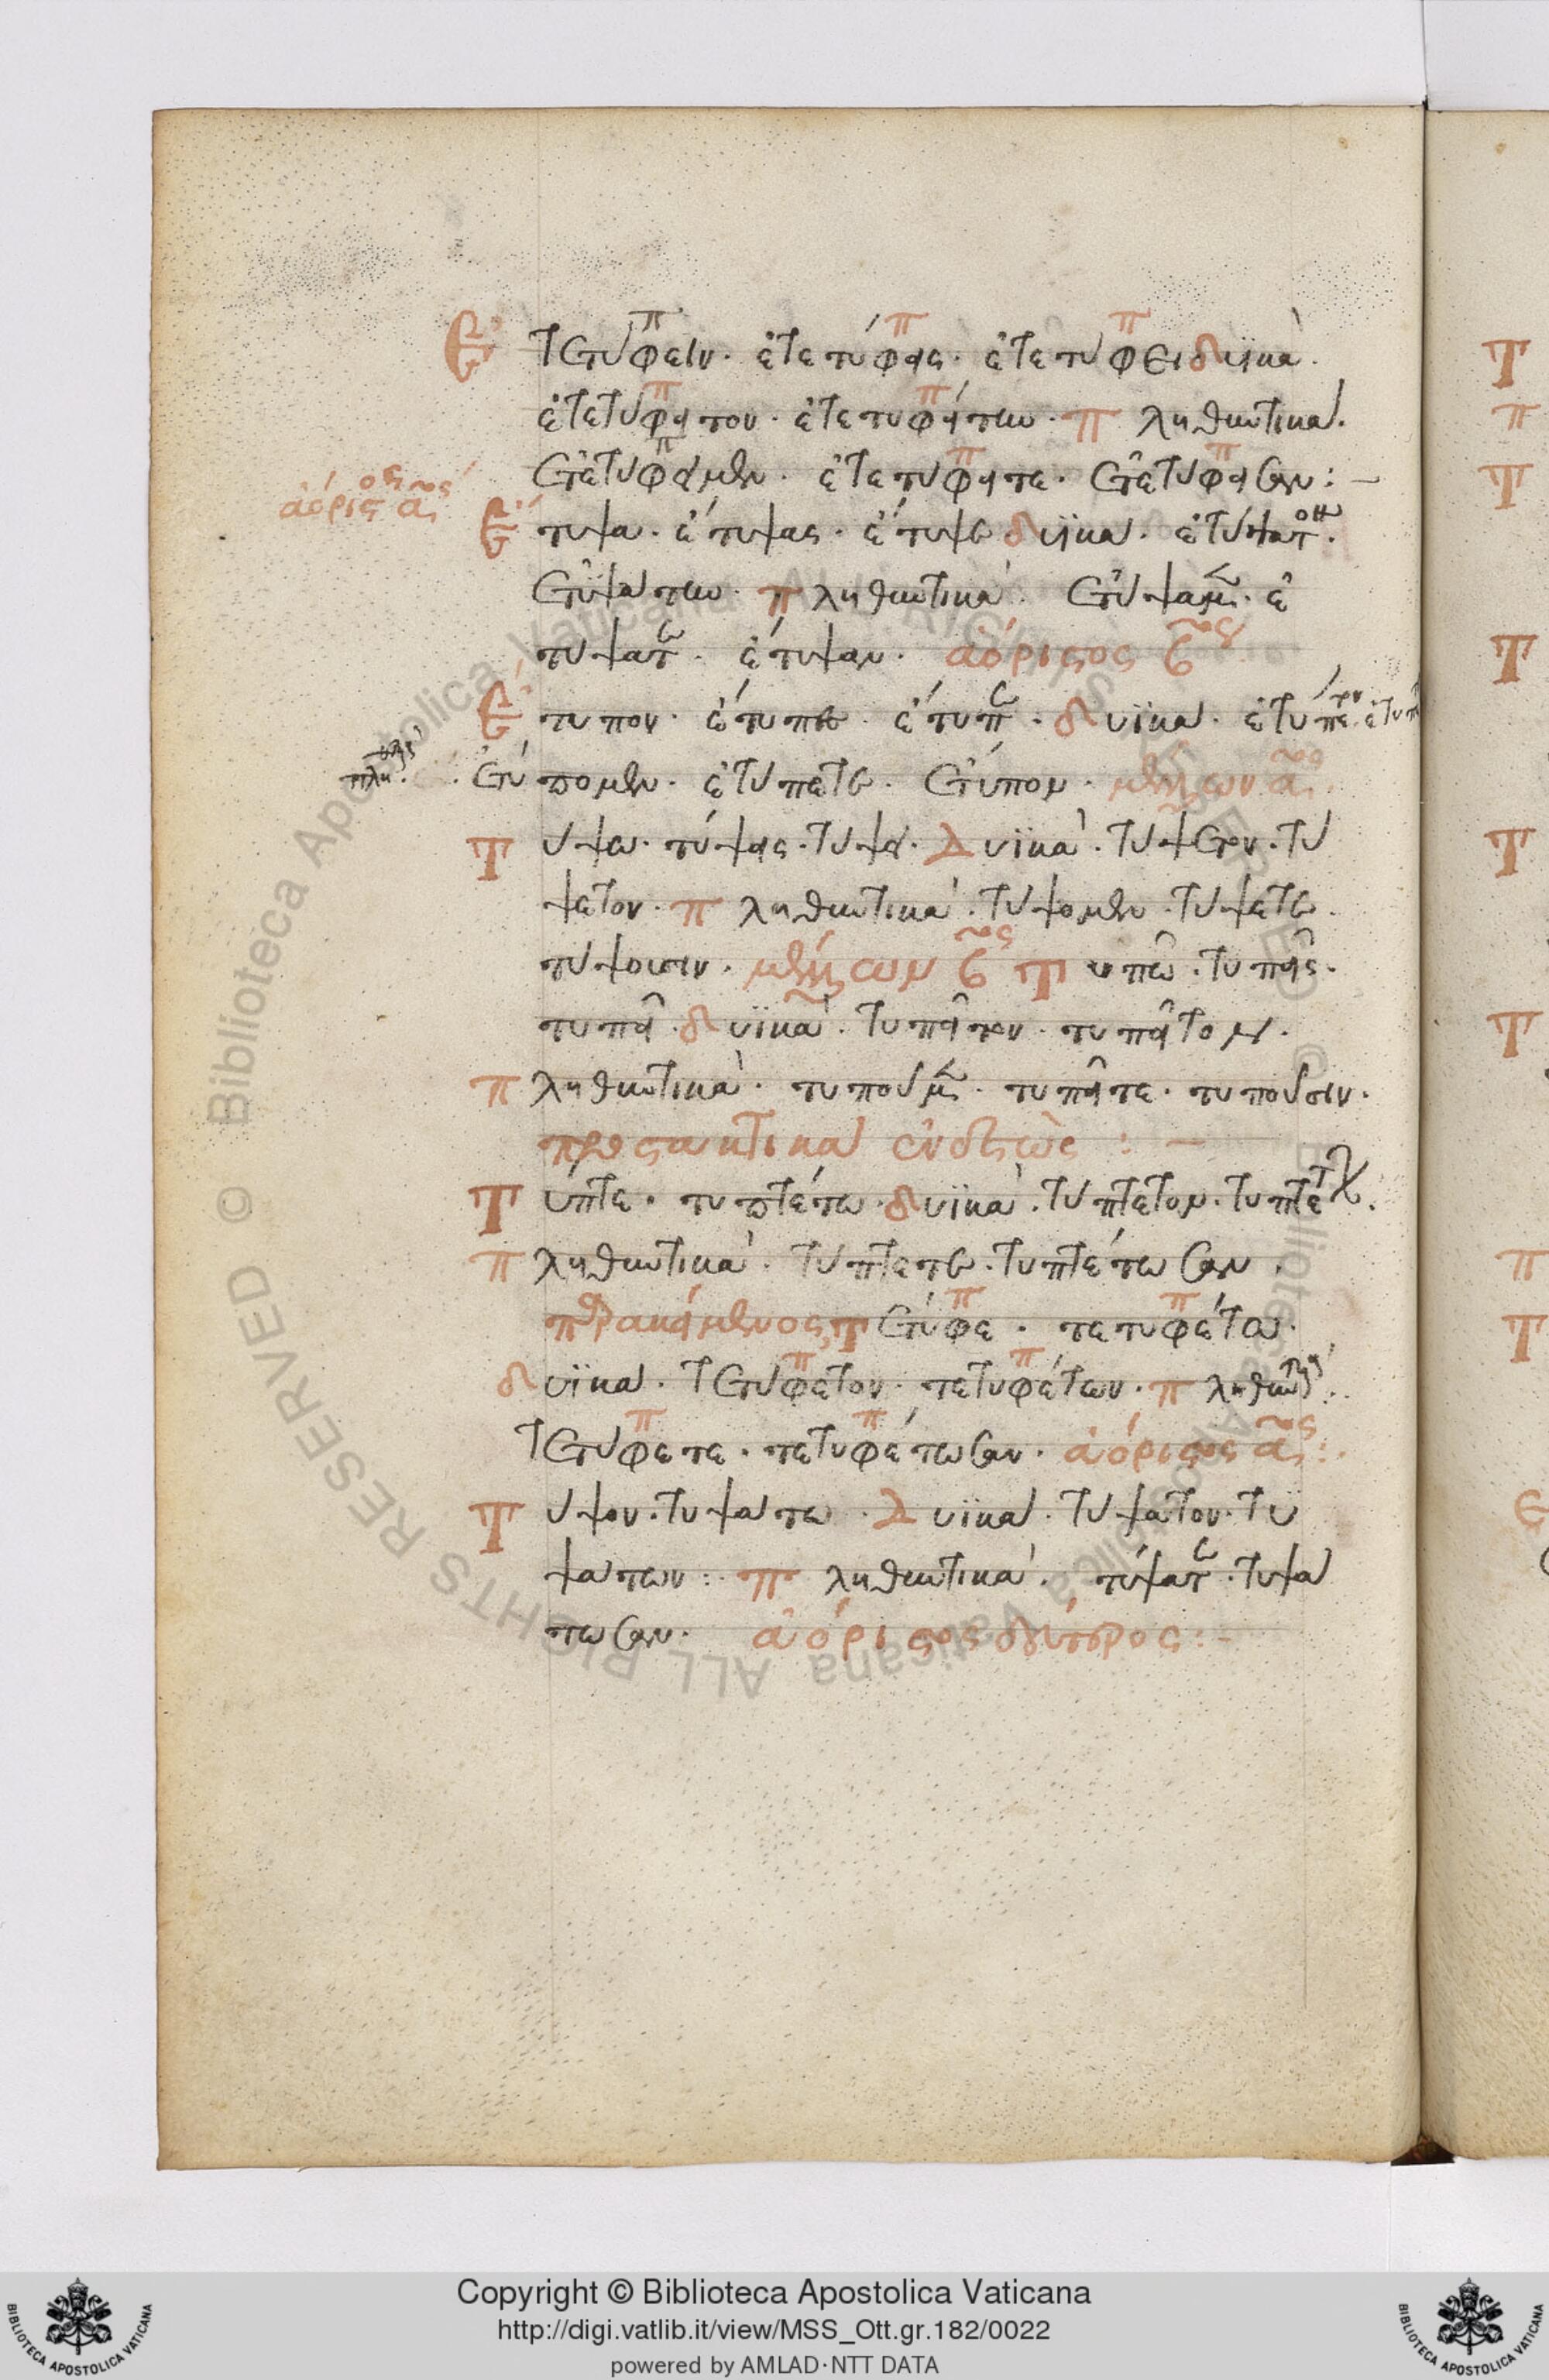 Ἐτετύφειν. ἐτετύφεις. ἐτετύφει δυϊκὰ.
ἐτετύφειτον. ἐτετυφείτην. πληθυντικά.
ἐτετύφειμεν. ἐτετύφειτε. ἐτετύφεισαν:—
ἀόριστος α^ος
Ἔτυψα. ἔτυψας. ἔτυψε δυϊκά. ἐτύψατον.
ἐτυψάτην. πληθυντικά. ἐτύψαμεν. ἐ
τύψατε. ἔτυψαν. ἀόριστος β^ος
Ἔτυπον. ἔτυπες. ἔτυπε. δυϊκά. ἐτύπετον. ἐτυπ
πλη. ἐτύπομεν. ἐτύπετε. ἔτυπον. μέλλων α^ος
Τύψω. τύψεις. τύψει. δυϊκὰ. τύψετον. τύ
ψετον. πληθυντικά. τύψομεν. τύψετε.
τύψουσιν. μέλλων β^ος Τυπῶ. τυπεῖς.
τυπεῖ. δυϊκὰ. τυπεῖτον. τυπεῖτον.
πληθυντικὰ. τυποῦμεν. τυπεῖτε. τυποῦσιν.
προστακτικὰ ἐνεστῶτος:—
Τύπτε. τυπτέτω. δυϊκὰ. τύπτετον. τυπτέτων.
πληθυντικὰ. τύπτετε. τυπτέτωσαν.
παρακείμενος, τέτυφε. τετυφέτω.
δυϊκά. τετύφετον. τετυφέτων. πληθυντικά.
τετύφετε. τετυφέτωσαν. ἀόριστος α^ος:
Τύψον. τυψάτω. δυϊκά. τύψατον. τυ
ψάτων: πληθυντικὰ. τύψατε. τυψά
τωσαν. ἀόριστος δεύτερος:-
Copyright © Biblioteca Apostolica Vaticana
http://digi.vatlib.it/view/MSS_Ott.gr.182/0022
powered by AMLAD·NTT DATA